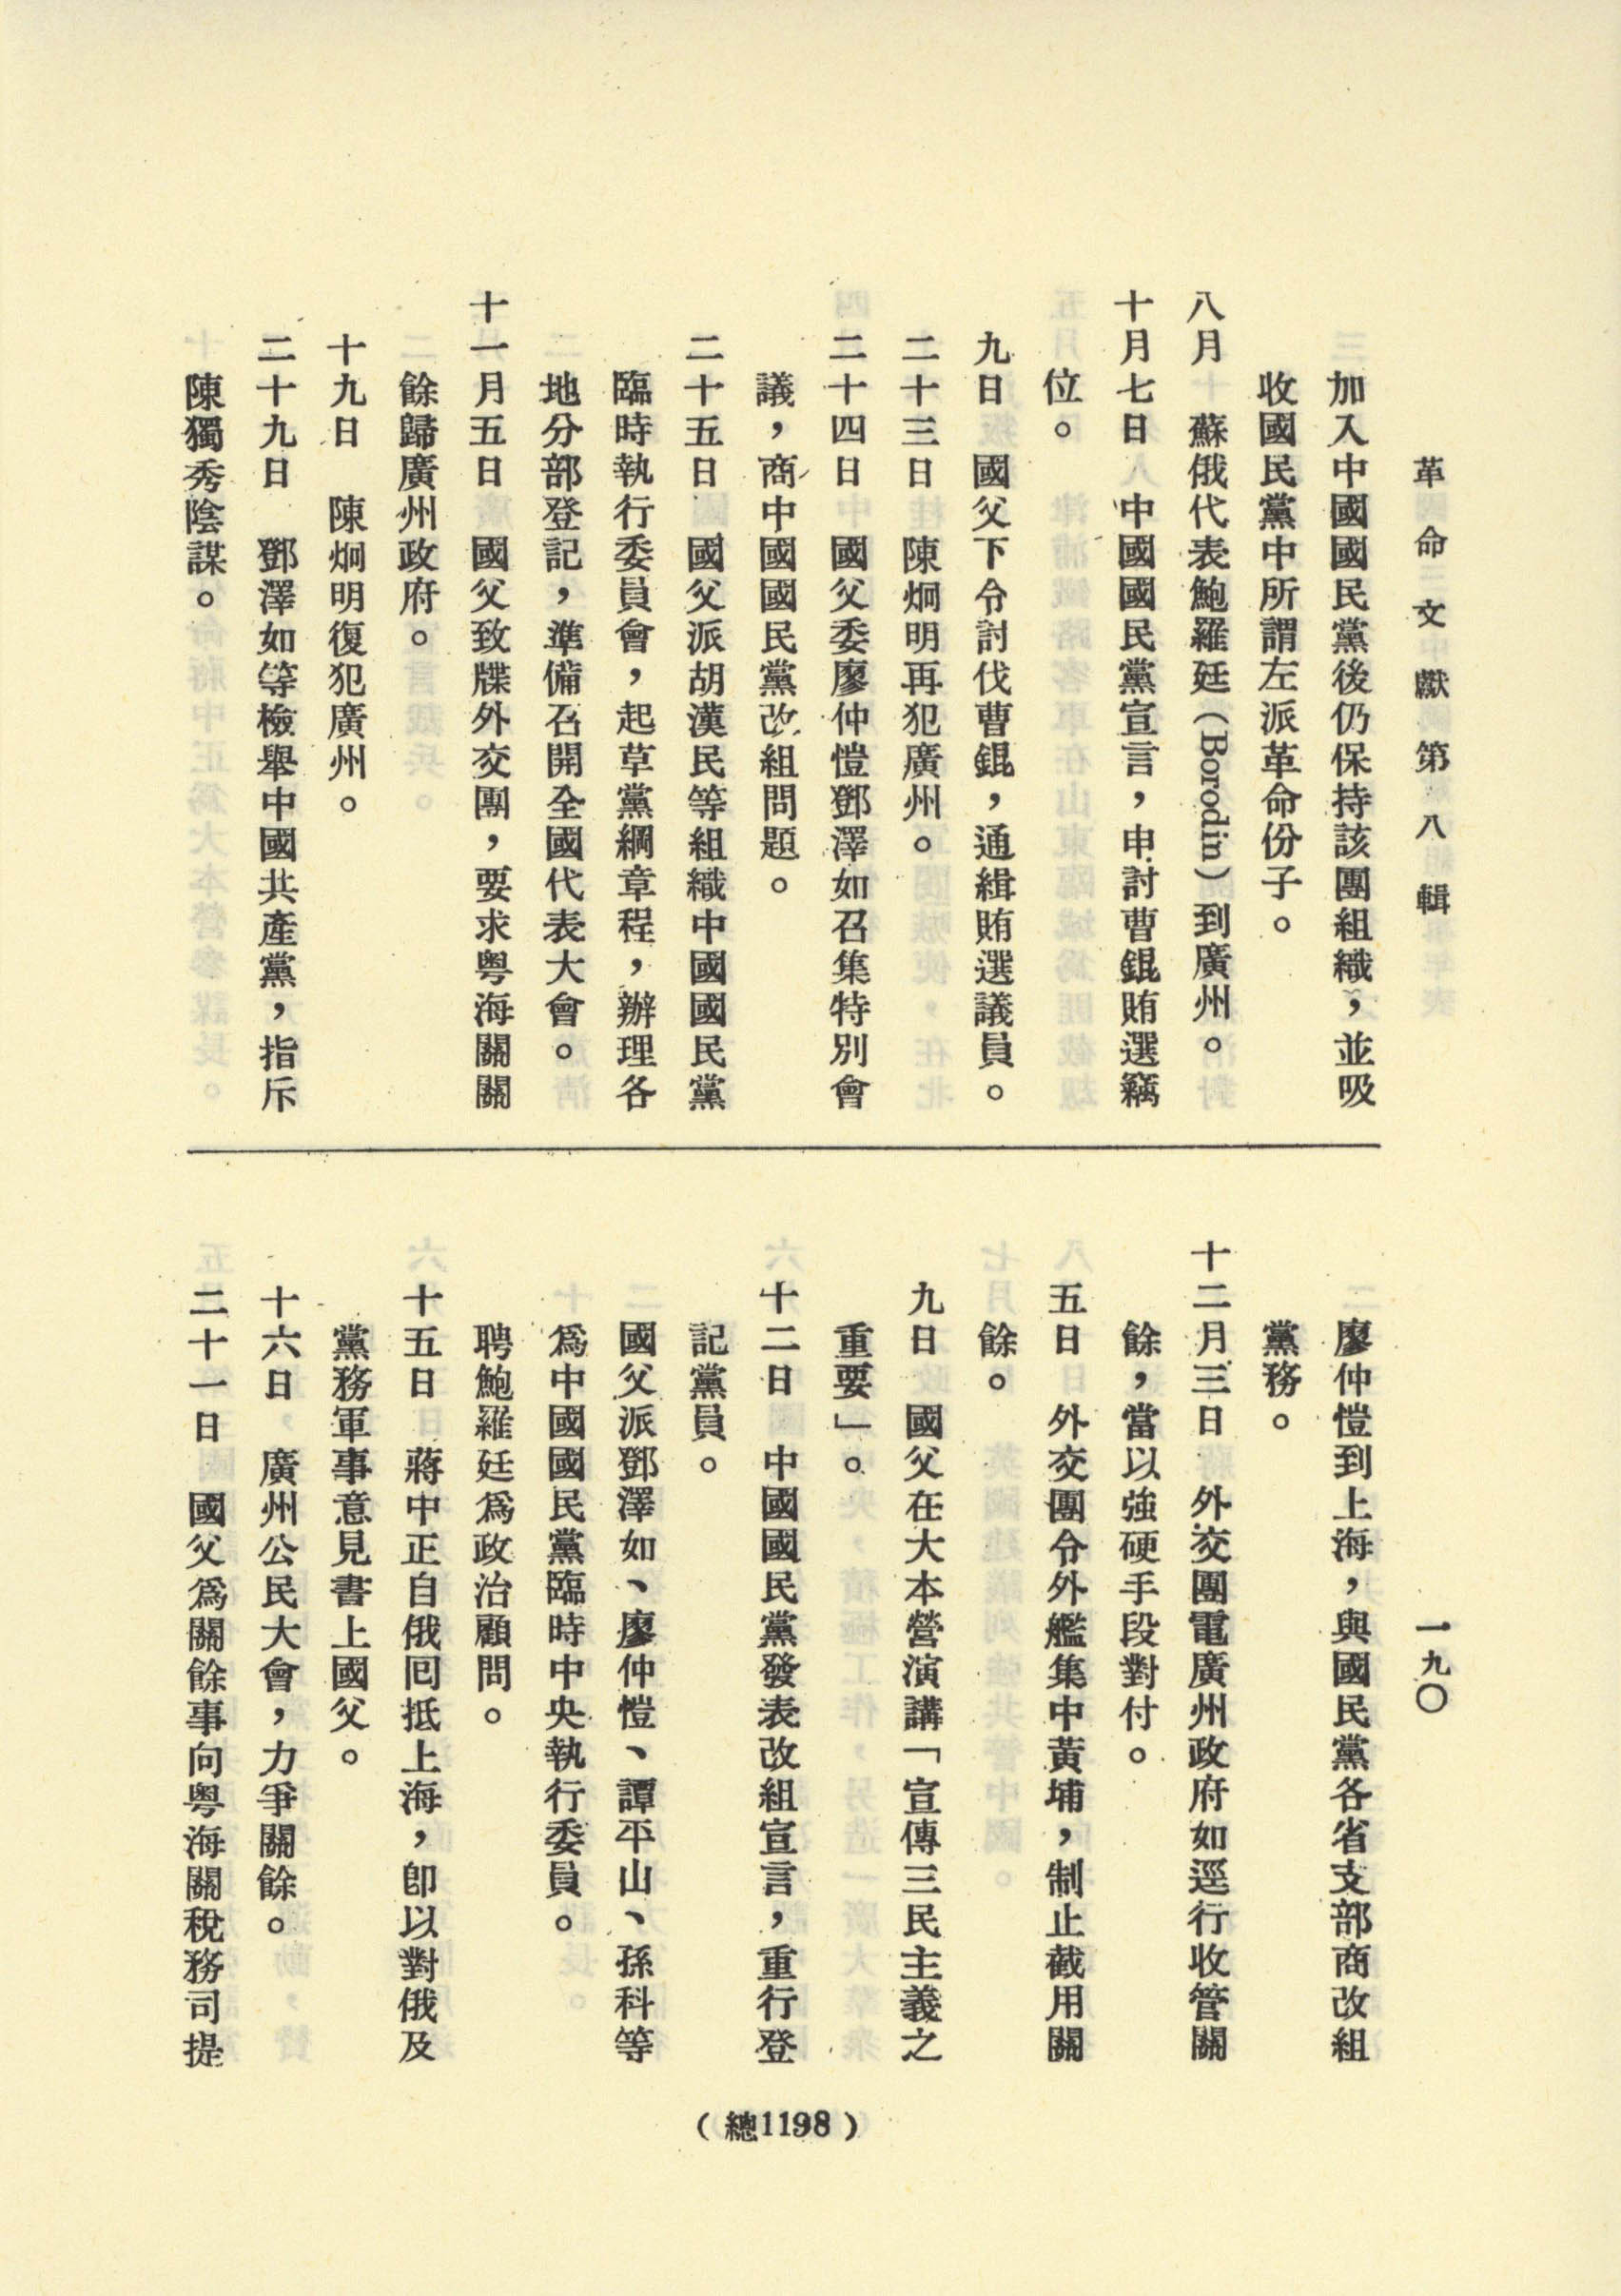 革命文獻第八輯
一九〇
加入中國國民黨後仍保持該團組織，並吸
收國民黨中所謂左派革命份子。
八月　蘇俄代表鮑羅廷(Borodin)到廣州。
十月七日　中國國民黨宣言，申討曹錕賄選竊
位。
九日　國父下令討伐曹錕，通緝賄選議員。
二十三日　陳炯明再犯廣州。
二十四日　國父委廖仲愷鄧澤如召集特別會
議，商中國國民黨改組問題。
二十五日　國父派胡漢民等組織中國國民黨
臨時執行委員會，起草黨綱章程，辦理各
地分部登記，準備召開全國代表大會。
十一月五日　國父致牒外交團，要求粵海關關
餘歸廣州政府。
十九日　陳炯明復犯廣州。
二十九日　鄧澤如等檢舉中國共產黨，指斥
陳獨秀陰謀。
廖仲愷到上海，與國民黨各省支部商改組
黨務。
十二月三日　外交團電廣州政府如逕行收管關
餘，當以強硬手段對付。
五日　外交團令外艦集中黃埔，制止截用關
餘。
九日　國父在大本營演講「宣傳三民主義之
重要」。
十二日　中國國民黨發表改組宣言，重行登
記黨員。
國父派鄧澤如、廖仲愷、譚平山、孫科等
爲中國國民黨臨時中央執行委員。
聘鮑羅廷爲政治顧問。
十五日　蔣中正自俄回抵上海，卽以對俄及
黨務軍事意見書上國父。
十六日　廣州公民大會，力爭關餘。
二十一日　國父爲關餘事向粵海關稅務司提
（總1198）